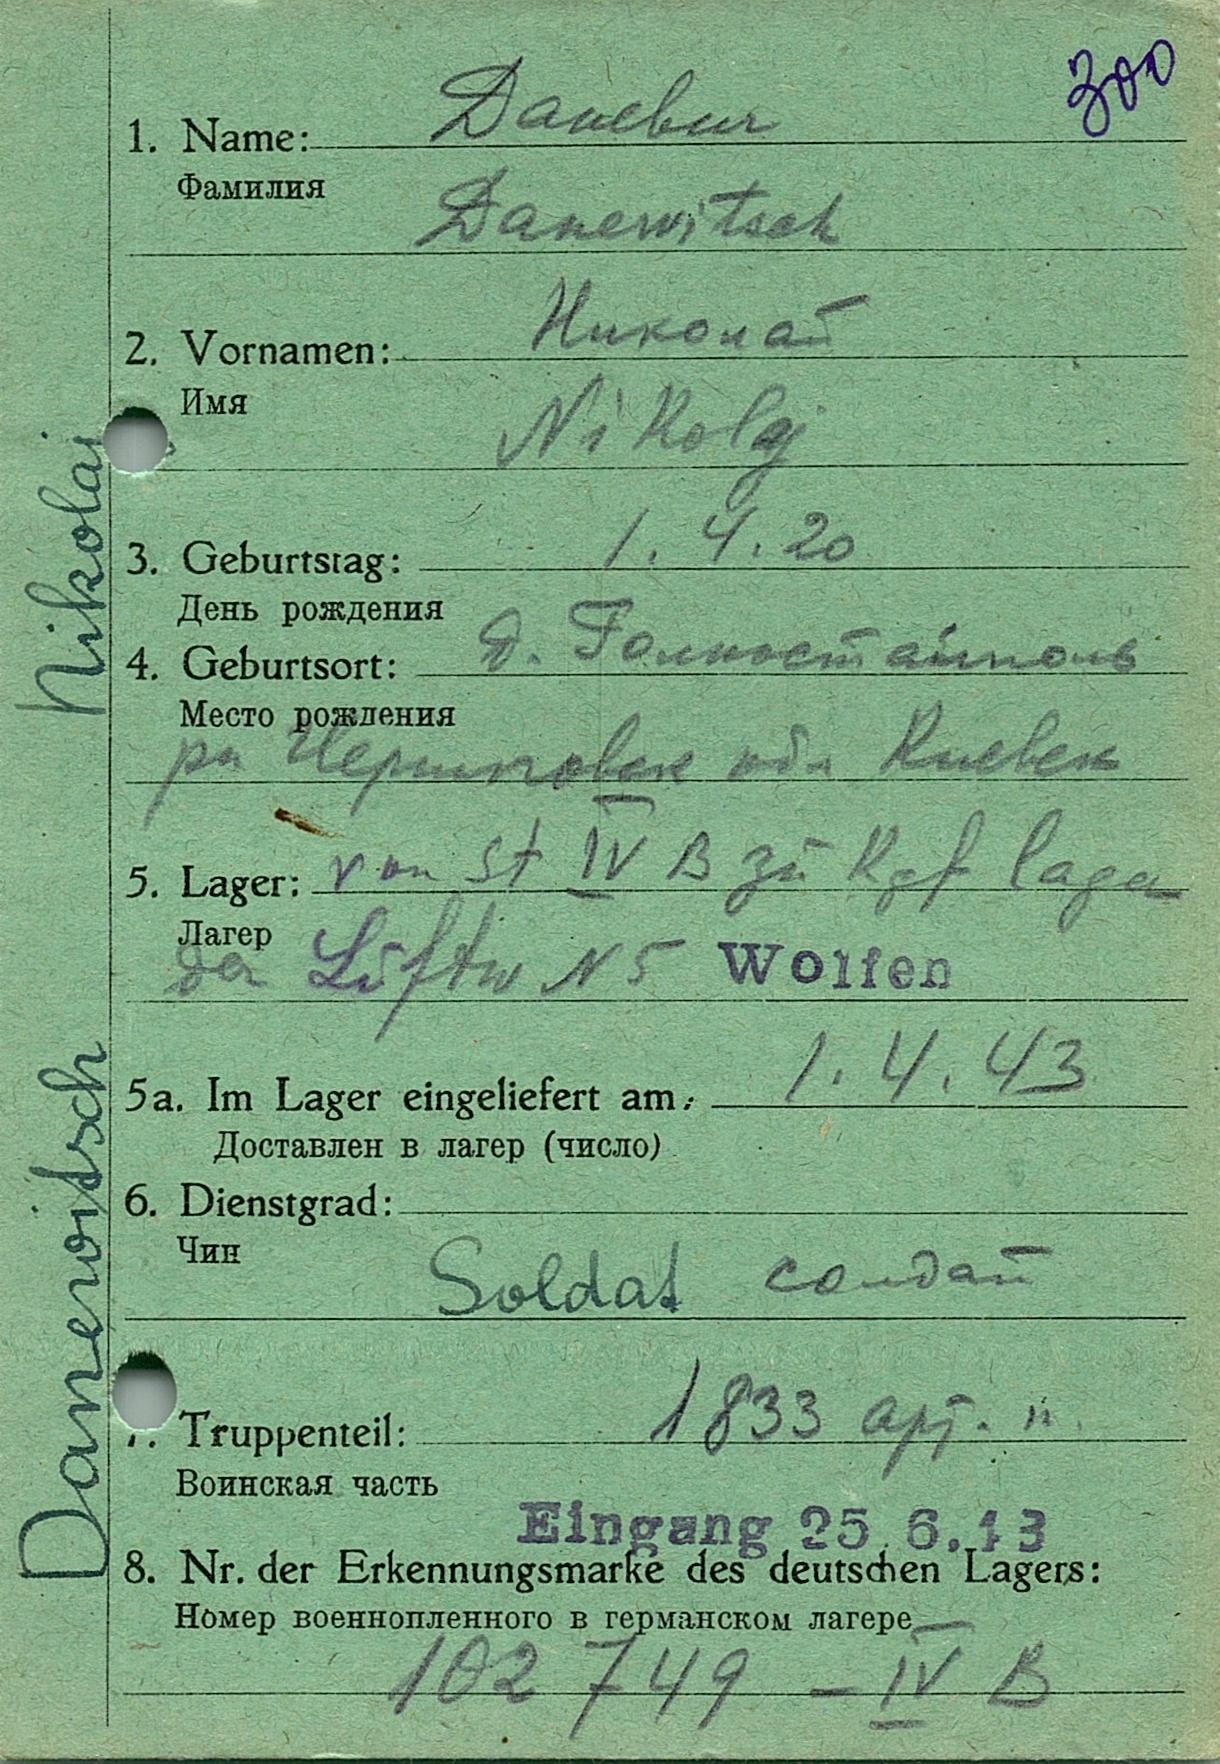 300
1. Name: Даневич
Фамилия
Danewitsch
2. Vornamen: Николай
Имя
Nikolaj
3. Geburtstag: 1. 4. 20
День рождения
4. Geburtsort: д.
Место рождения
рн обл Киевск
5. Lager: von St IV B zu Kgf lager
Лагер
der Luftw N 5 Wolfen
5a. Im Lager eingeliefert am: 1. 4. 43
Доставлен в лагер (число)
6. Dienstgrad:
Чин
Soldat солдат
7. Truppenteil: 1833 арт. п.
Воинская часть
Eingang 25.6.43
8. Nr. der Erkennungsmarke des deutschen Lagers:
Номер военнопленного в германском лагере
102 749 – IV B
Danewitsch Nikolaj